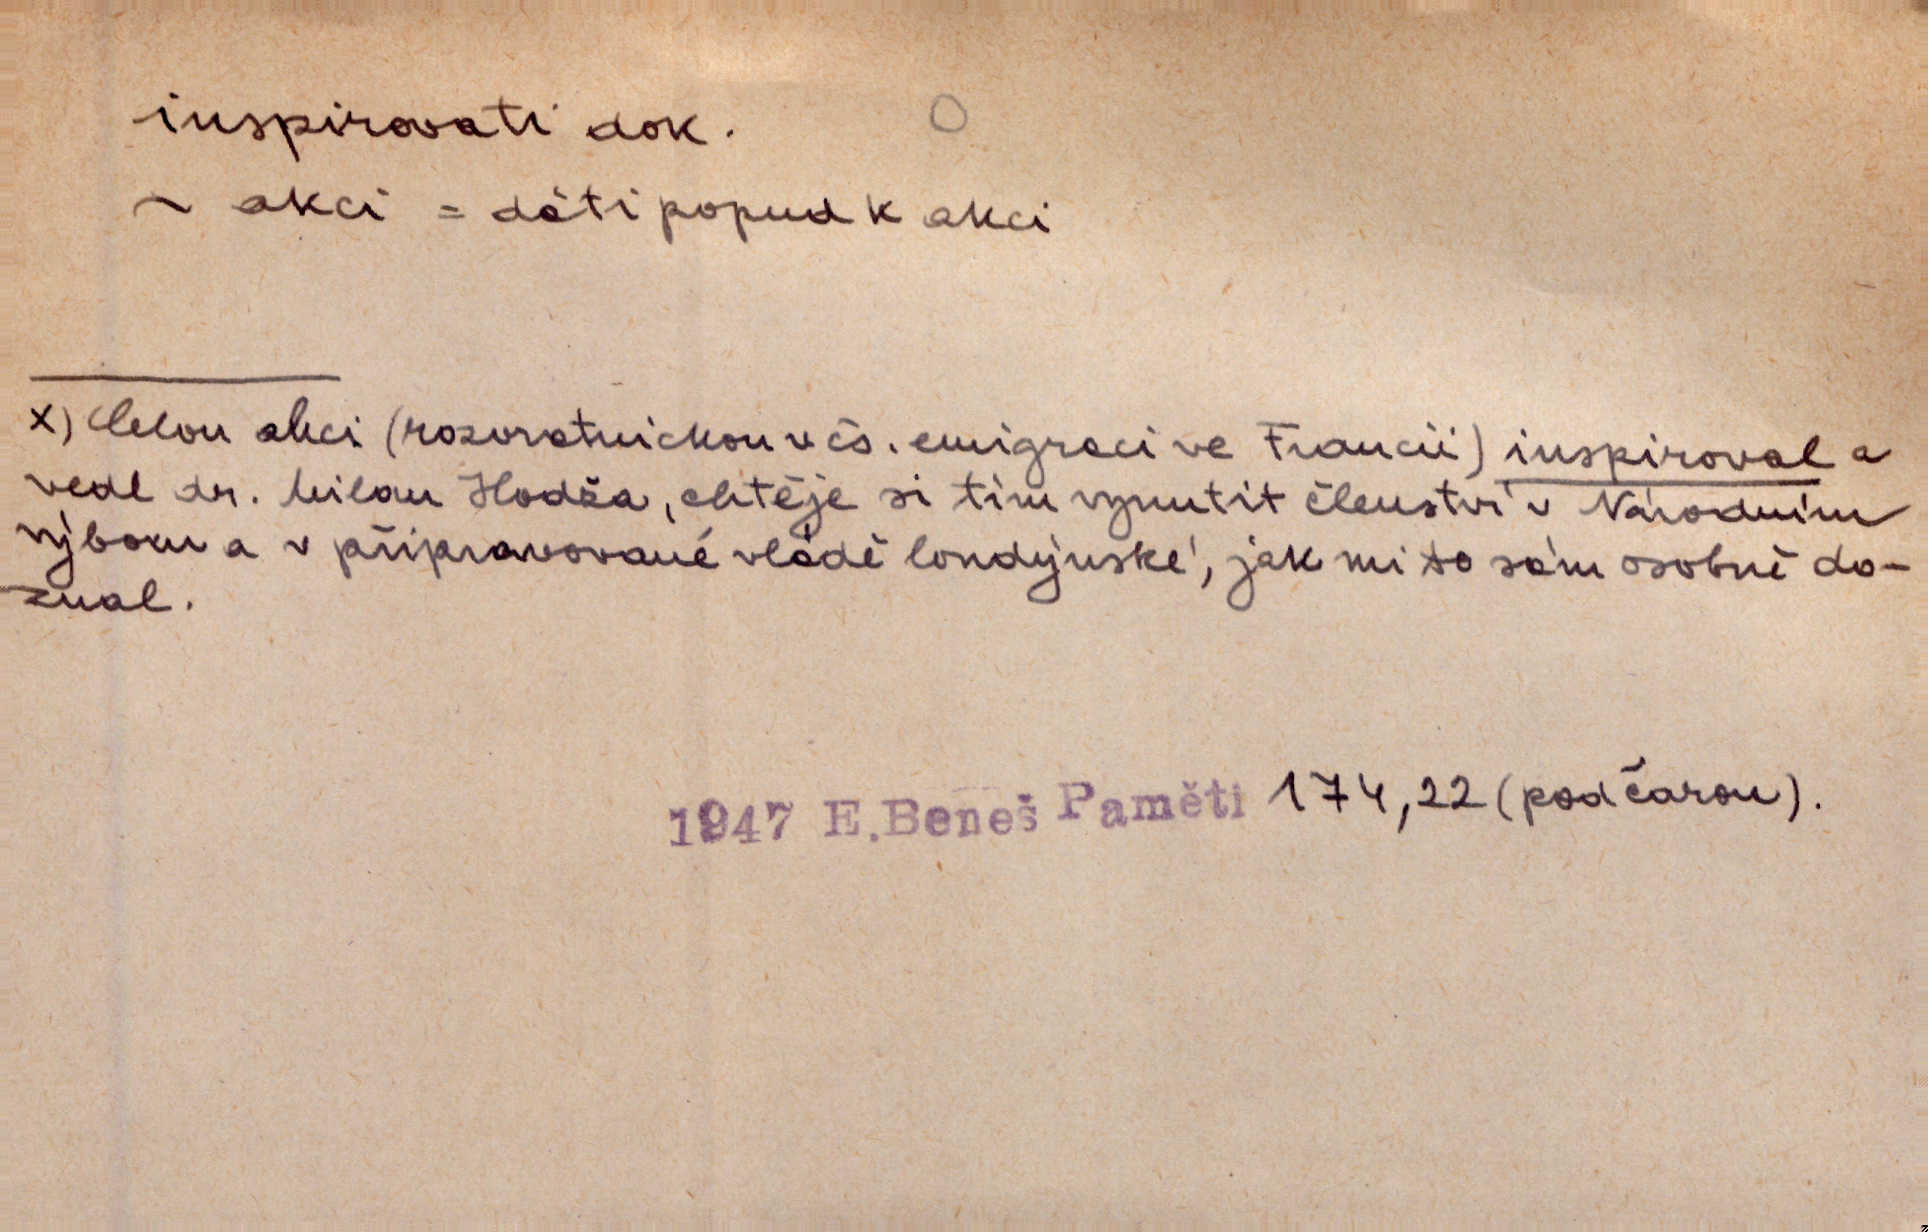 inspirovati dok. O
~ akci = dáti popud k akci
x) Celou akci (rozvratnickou v čs. emigraci ve Francii) inspiroval a
vedl dr. Milan Hodža, chtěje si tím vynutit členství v Národním
výboru a v připravované vládě londýnské, jak mi to sám osobně do-
znal.
1947 E. Beneš Paměti 174,22 (pod čarou).